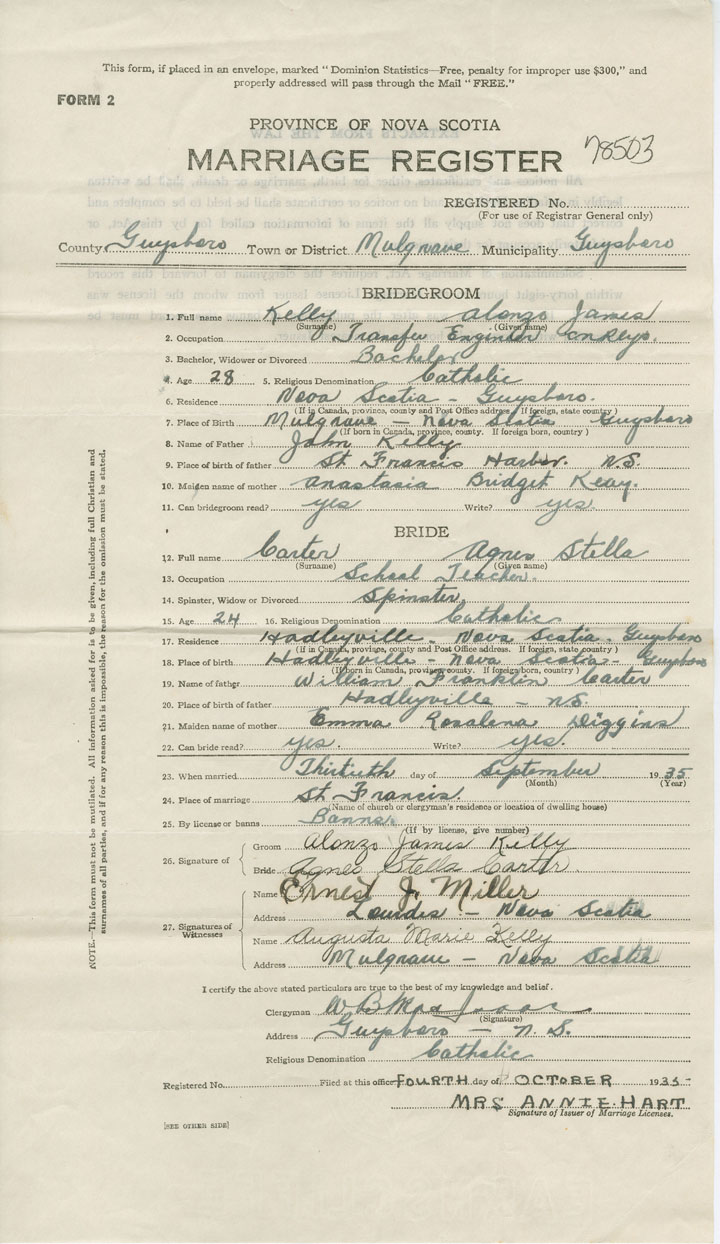 This form, if placed in an envelope, marked "Dominion Statistics—Free, penalty for improper use $300," and
properly addressed will pass through the Mail "FREE."
FORM 2
PROVINCE OF NOVA SCOTIA
MARRIAGE REGISTER 78503
REGISTERED No.
(For use of Registrar General only)
County Guysboro Town or District Mulgrave Municipality Guysboro
BRIDEGROOM
1. Full name Kelly Alonzo James
(Surname) (Given name)
2. Occupation Transfer Engineer on Rlys.
3. Bachelor, Widower or Divorced Bachelor
4. Age 28 5. Religious Denomination Catholic
6. Residence Nova Scotia - Guysboro.
(If in Canada, province, county and Post Office address. If foreign, state country)
7. Place of Birth Mulgrave - Nova Scotia Guysboro
(If born in Canada, province, county. If foreign born, country)
8. Name of Father John Kelly
9. Place of birth of father St Francis Harbor. N.S.
10. Maiden name of mother Anastasia Bridget Keay.
11. Can bridegroom read? yes Write? yes.
BRIDE
12. Full name Carter Agnes Stella
(Surname) (Given name)
13. Occupation School Teacher.
14. Spinster, Widow or Divorced Spinster.
15. Age 24 16. Religious Denomination Catholic
17. Residence Hadleyville - Nova Scotia - Guysboro
(If in Canada, province, county and Post Office address. If foreign, state country)
18. Place of birth Hadleyville - Nova Scotia - Guysboro
(If born in Canada, province, county. If foreign born, country)
19. Name of father William Franklin Carter
20. Place of birth of father Hadleyville - N.S.
21. Maiden name of mother Emma Rosalena Diggins
22. Can bride read? yes. Write? yes.
23. When married Thirtieth day of September 1935
(Month) (Year)
24. Place of marriage St Francis.
(Name of church or clergyman's residence or location of dwelling house)
25. By license or banns Banns.
(If by license, give number)
26. Signature of Groom Alonzo James Kelly
Bride Agnes Stella Carter
27. Signatures of Witnesses
Name Ernest J. Miller
Address Lourdes - Nova Scotia
Name Augusta Marie Kelly
Address Mulgrave - Nova Scotia
I certify the above stated particulars are true to the best of my knowledge and belief.
Clergyman W B MacIsaac
(Signature)
Address Guysboro - N. S.
Religious Denomination Catholic
Registered No. Filed at this office FOURTH day of OCTOBER 1935
MRS ANNIE HART
Signature of Issuer of Marriage Licenses.
[SEE OTHER SIDE]
NOTE.—This form must not be mutilated. All information asked for is to be given, including full Christian and
surnames of all parties, and if for any reason this is impossible, the reason for the omission must be stated.